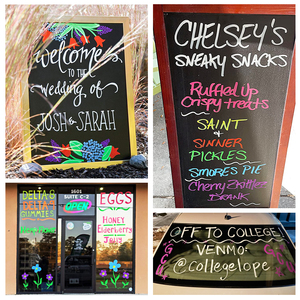 Welcome
TO THE
wedding of
JOSH & SARAH
CHELSEY'S
SNEAKY SNACKS
Ruffled Up
Crispy treats
SAINT
&
SINNER
PICKLES
SMORES PIE
Cherry Zkittlez
DRANK
DELTA 8
DELTA 9
GUMMIES
1601
SUITE C-2
OPEN
EGGS
HONEY
Elderberry
OFF TO COLLEGE
VENMO:
@collegelope